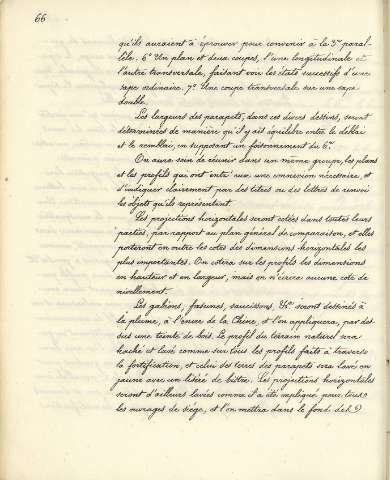 66
qu'ils auraient à éprouver pour convenir à la 3e paral-
lèle. 6° Un plan et deux coupes, l'une longitudinale et
l'autre transversale, faisant voir les états successifs d'une
sape ordinaire. 7° Une coupe transversale sur une sape
double.
Les largeurs des parapets, dans ces divers dessins, seront
déterminées de manière qu'il y ait équilibre entre le déblai
et le remblai, en supposant un foisonnement du 6e.
On aura soin de réunir dans un même groupe, les plans
et les profils qui ont entr'eux une connexion nécessaire, et
d'indiquer clairement par des titres ou des lettres de renvoi
les objets qu'ils représentent.
Les projections horizontales seront cotées dans toutes leurs
parties, par rapport au plan général de comparaison, et elles
porteront en outre les cotes des dimensions horizontales les
plus importantes. On cotera sur les profils les dimensions
en hauteur et en largeur, mais on n'écrira aucune cote de
nivellement.
Les gabions, fascines, saucissons, &ca seront dessinés à
la plume, à l'encre de la Chine, et l'on appliquera, par des-
sus une teinte de bois. Le profil du terrain naturel sera
haché et lavé comme sur tous les profils faits à travers
la fortification, et celui des terres des parapets sera lavé en
jaune avec un liséré de bistre. Les projections horizontales
seront d'ailleurs lavées comme il a été expliqué pour tous
les ouvrages de siège, et l'on mettra dans le fond des